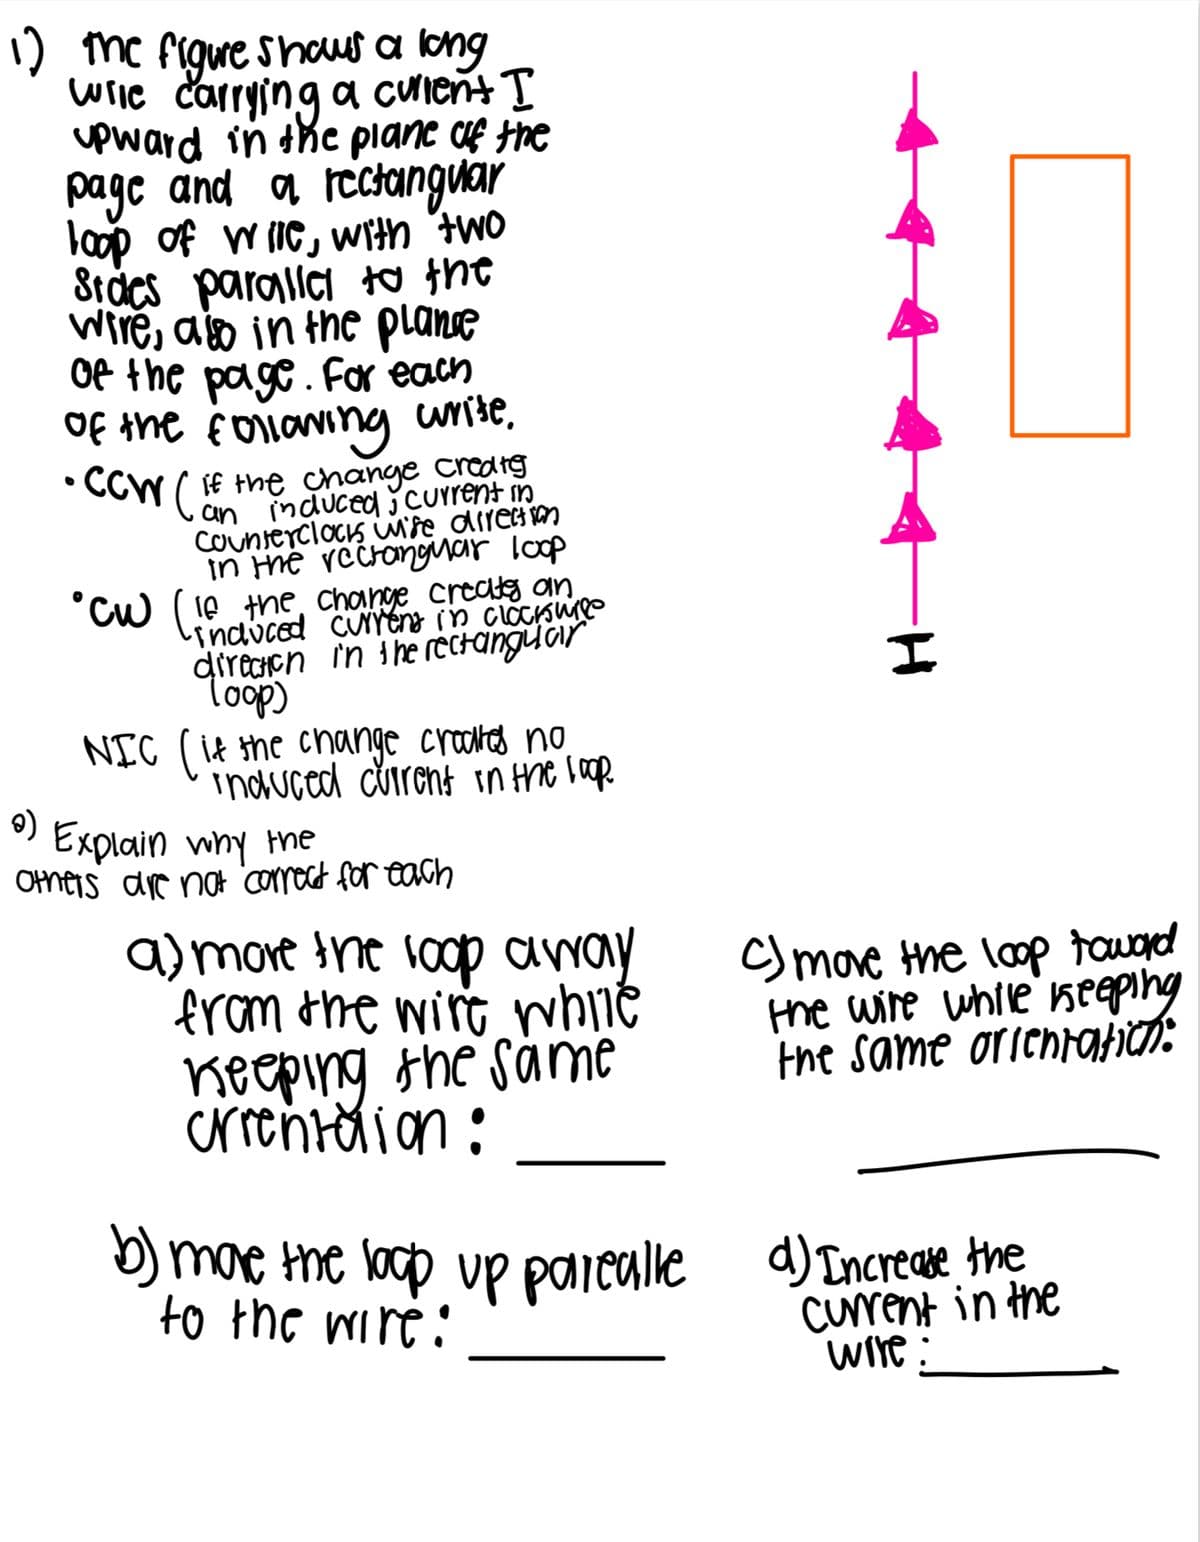 1) The figure shows a long
wire carrying a current I
upward in the plane of the
page and a rectangular
loop of wire, with two
sides parallel to the
wire, also in the plane
of the page. For each
of the following write.
• CCW ( if the change creates
an induced ; current in
counterclocks wise direction
in the rectangular loop
• CW ( if the change creates an
induced current in clockwise
direction in the rectangular
loop)
NIC ( if the change created no
induced current in the loop.
Explain why the
others are not correct for each
a) move the loop away
from the wire while
keeping the same
orientaion :
b) move the loop up parealle
to the wire :
c) move the loop toward
the wire while keeping
the same orientation:
d) Increase the
current in the
wire :
I